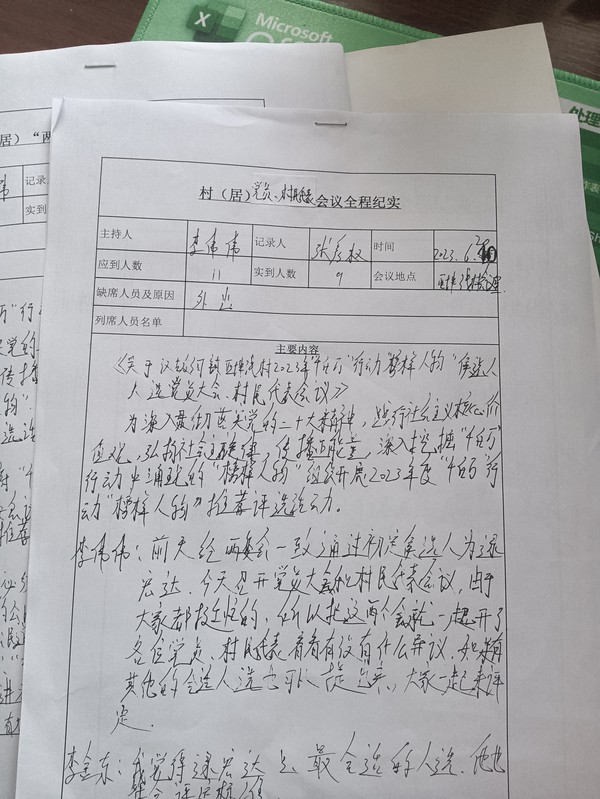 Microsoft
处理
居）“两
记录
实到
村（居）党员、村民代表会议全程纪实
主持人 李伟伟 记录人 时间 2023.6.
应到人数 11 实到人数 9 会议地点
缺席人员及原因 外出
列席人员名单
主要内容
《关于 村2023年“十百万”行动“榜样人物”候选人
人选党员大会、村民代表会议》
为深入贯彻落实党的二十大精神，践行社会主义核心价
值观，弘扬社会主旋律，传播正能量，深入挖掘“十百万”
行动中涌现的“榜样人物”组织开展2023年度“十百万”行
动“榜样人物”推荐评选活动。
李伟伟：前天经两委会一致通过初定候选人为逯
宏达，今天召开党员大会和村民代表会议，由于
大家都挺忙的，所以把这两个会议一起开了
各位党员、村民代表看看有没有什么异议，如果有
其他的合适人选也可以提出来，大家一起来评
定.
李金东：我觉得逯宏达是最合适的人选，他也